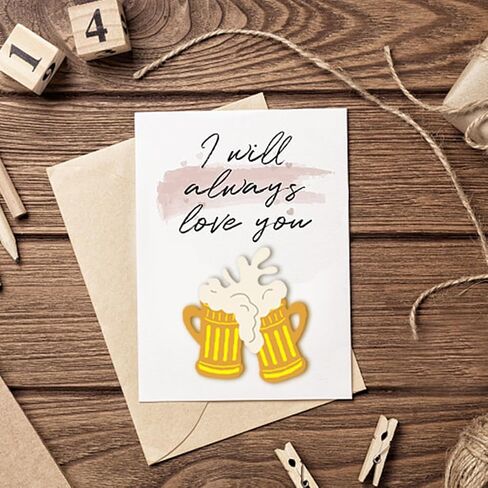 1
4
I will
always
love you